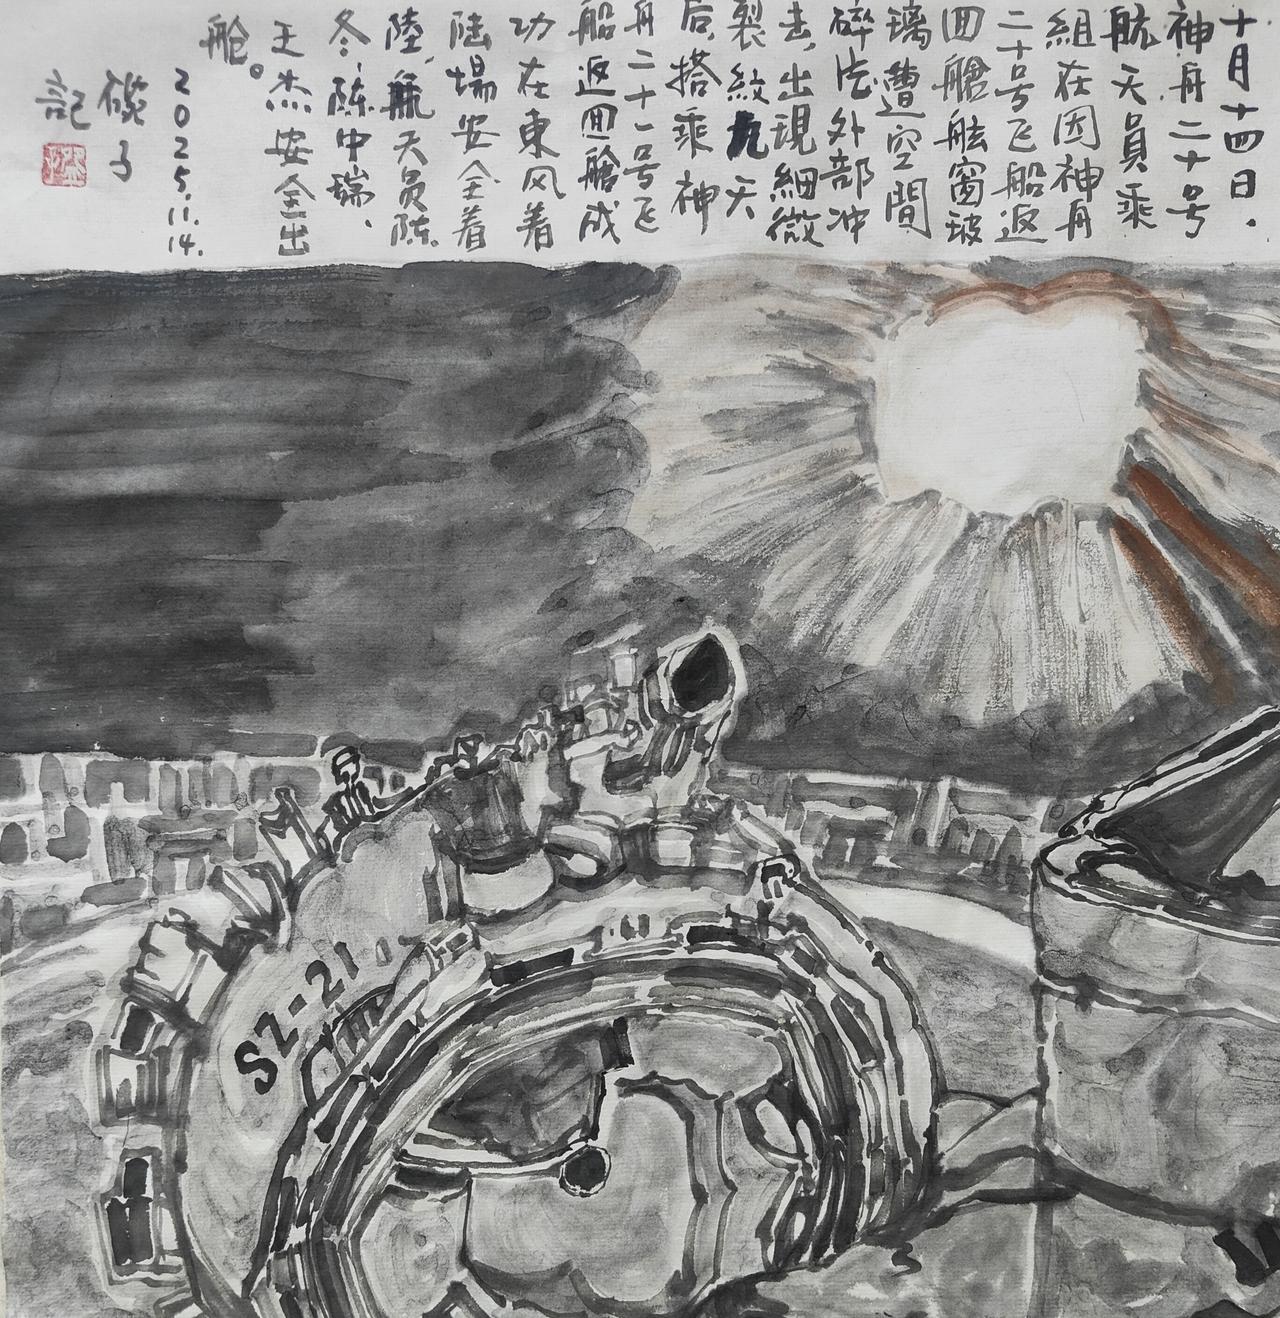 十月十四日、
神舟二十号
航天員乘
組在因神舟
二十号飞船返
囬艙舷窗玻
璃遭空間
碎片外部冲
击,出現細微
裂紋九天
后,搭乘神
舟二十一号飞
船返囬艙成
功在東风着
陆場安全着
陸,航天员陈
冬、陈中瑞、
王杰安全出
舱。
2025.11.14.
子
記
SZ-21